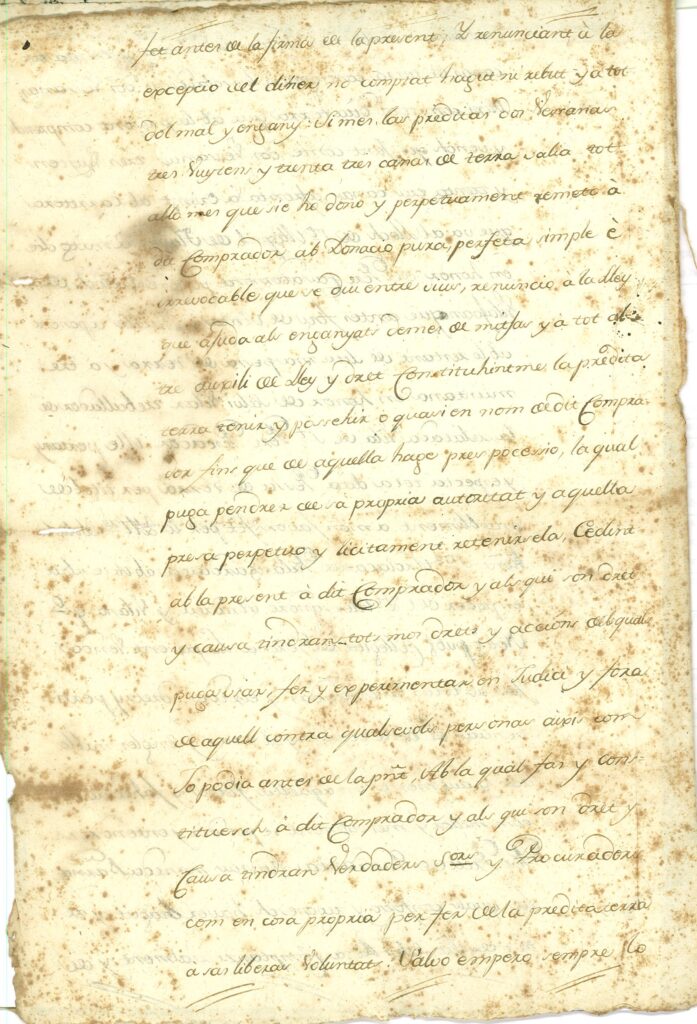 fet antes de la firma de la present; Y renunciant à la
excepcio del diner no comptat hagut ni rebut y à tot
dol mal y engany: Simes las preditas dos Vessanas
tres Vuytens y trenta tres canas de terra valia tot
allo mes que sie ho dono y perpetuament remeto à
dit Comprador ab Donacio pura, perfeta, simple è
irrevocable que se diu entre vius, renuncio a la Lley
que ajuda als enganyats demes de mitjas y à tot al-
tre auxili de Lley y dret Constituhintme la predita
terra tenir y possehir o quasi en nom de dit Compra-
dor fins que de aquella hage pres pocessio, la qual
puga pendrer de sa propria autoritat y aquella
presa perpetuo y licitament retenirsela, Cedint
ab la present à dit Comprador y als qui son dret
y causa tindran tots mos drets y accións dels quals
puga usar, fer y experimentar en Judici y fora
de aquell contra qualsevols personas aixis com
Jo podia antes de la pnt, Ab la qual fas y cons-
tituesch à dit Comprador y als qui son dret y
Causa tindran Verdaders Sors y Procuradors
com en cosa propria per fer de la predita terra
a sas liberas Voluntats: Salvo empero sempre lo